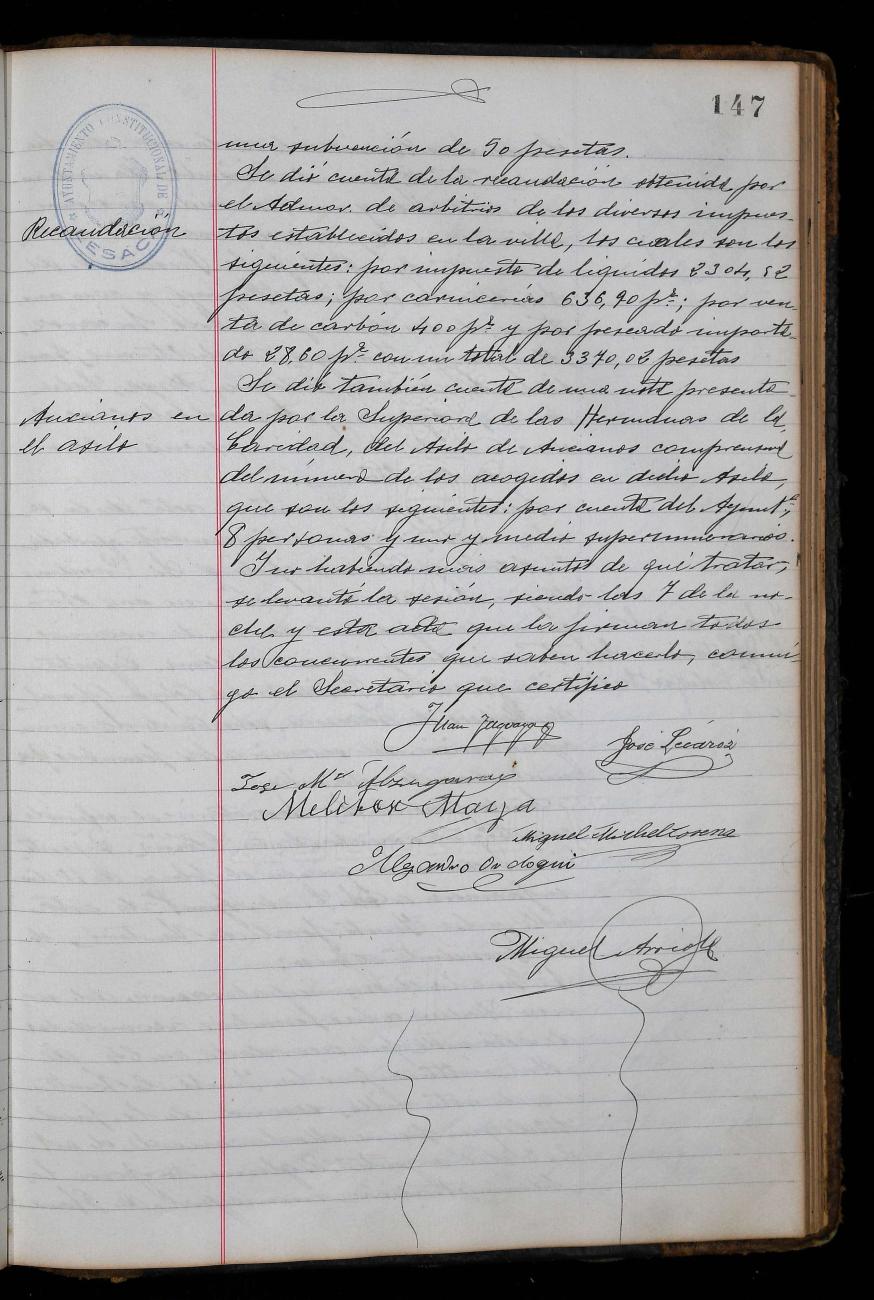 147
AYUNTAMIENTO CONSTITUCIONAL DE LESACA
una subvención de 50 pesetas.
Se dió cuenta de la recaudación obtenida por
el Admor. de arbitrios de los diversos impues-
Recaudación
tos establecidos en la villa, los cuales son los
siguientes: por impuesto de líquidos 2304,52
pesetas; por carnicerías 636,90 pts; por ven-
ta de carbón 400 pts y por pescado importa-
do 28,60 pts con un total de 3370,02 pesetas
Se dió también cuenta de una nota presenta-
Ancianos en
da por la Superiora de las Hermanas de la
el asilo
Caridad, del Asilo de Ancianos comprensiva
del número de los acogidos en dicho Asilo,
que son los siguientes: por cuenta del Aymtº,
8 personas y uno y medio supernumerarios.
Y no habiendo más asuntos de qué tratar,
se levantó la sesión, siendo las 7 de la no-
che y esta acta que la firman todos
los concurrentes que saben hacerlo, conmi-
go el Secretario que certifico
Juan
José
Jose Mª Alzugaray
Melitón Maya
Miguel Micheltorena
Alejandro Ordoqui
Miguel Arriola